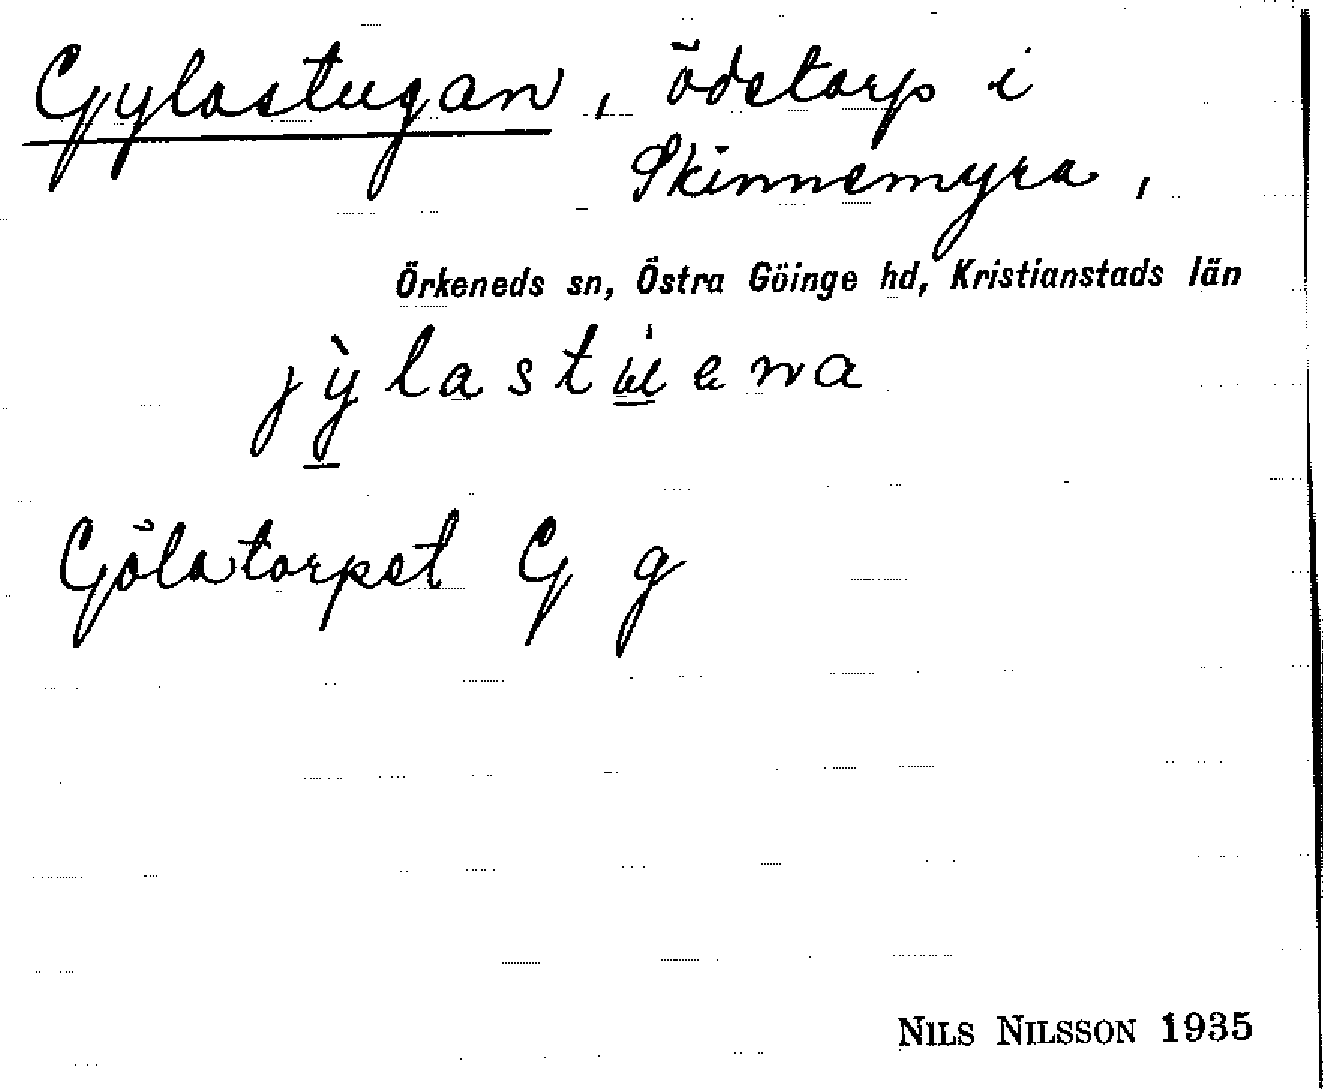 Gylastugan, ödetorp i
Skinnemyra,
Örkeneds sn, Östra Göinge hd, Kristianstads län
jỳlastu̇ena
Gölatorpet G g
NILS NILSSON 1935